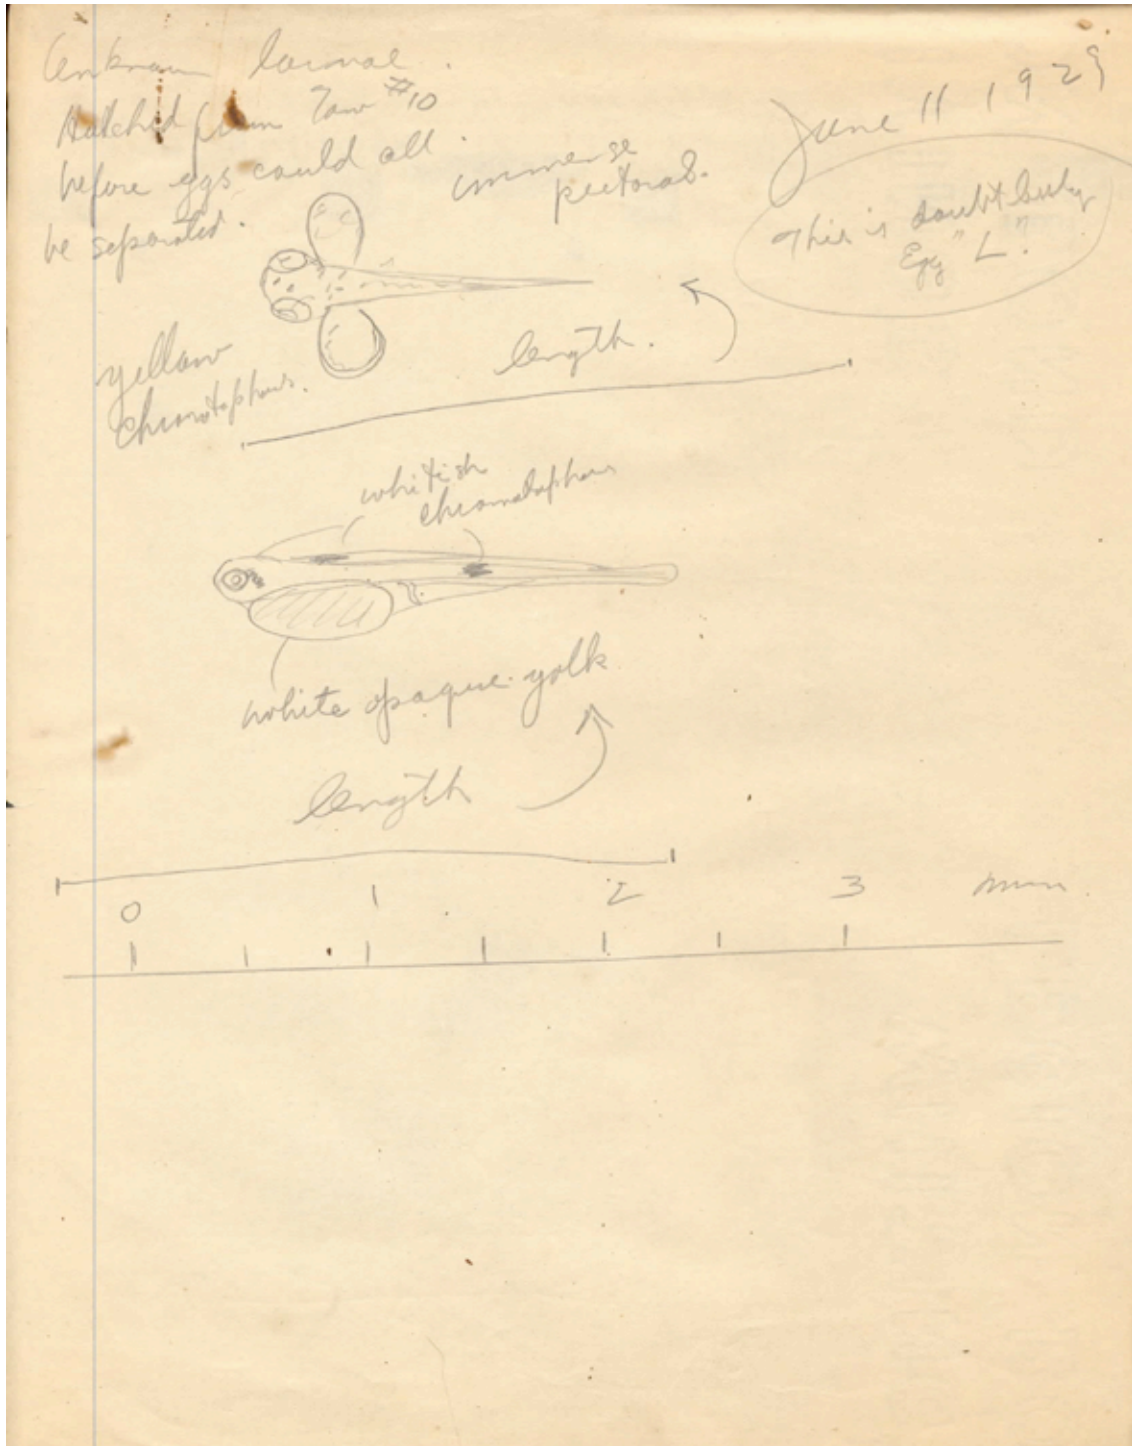 Unknown larvae.
Hatched from Tow #10
before eggs could all
be separated.
June 11 1929
This is doubtlessly
Egg "L".
immense
pectorals.
yellow
chromatophores.
length.
whitish
chromatophores
white opaque yolk
length
0 1 2 3 mm.